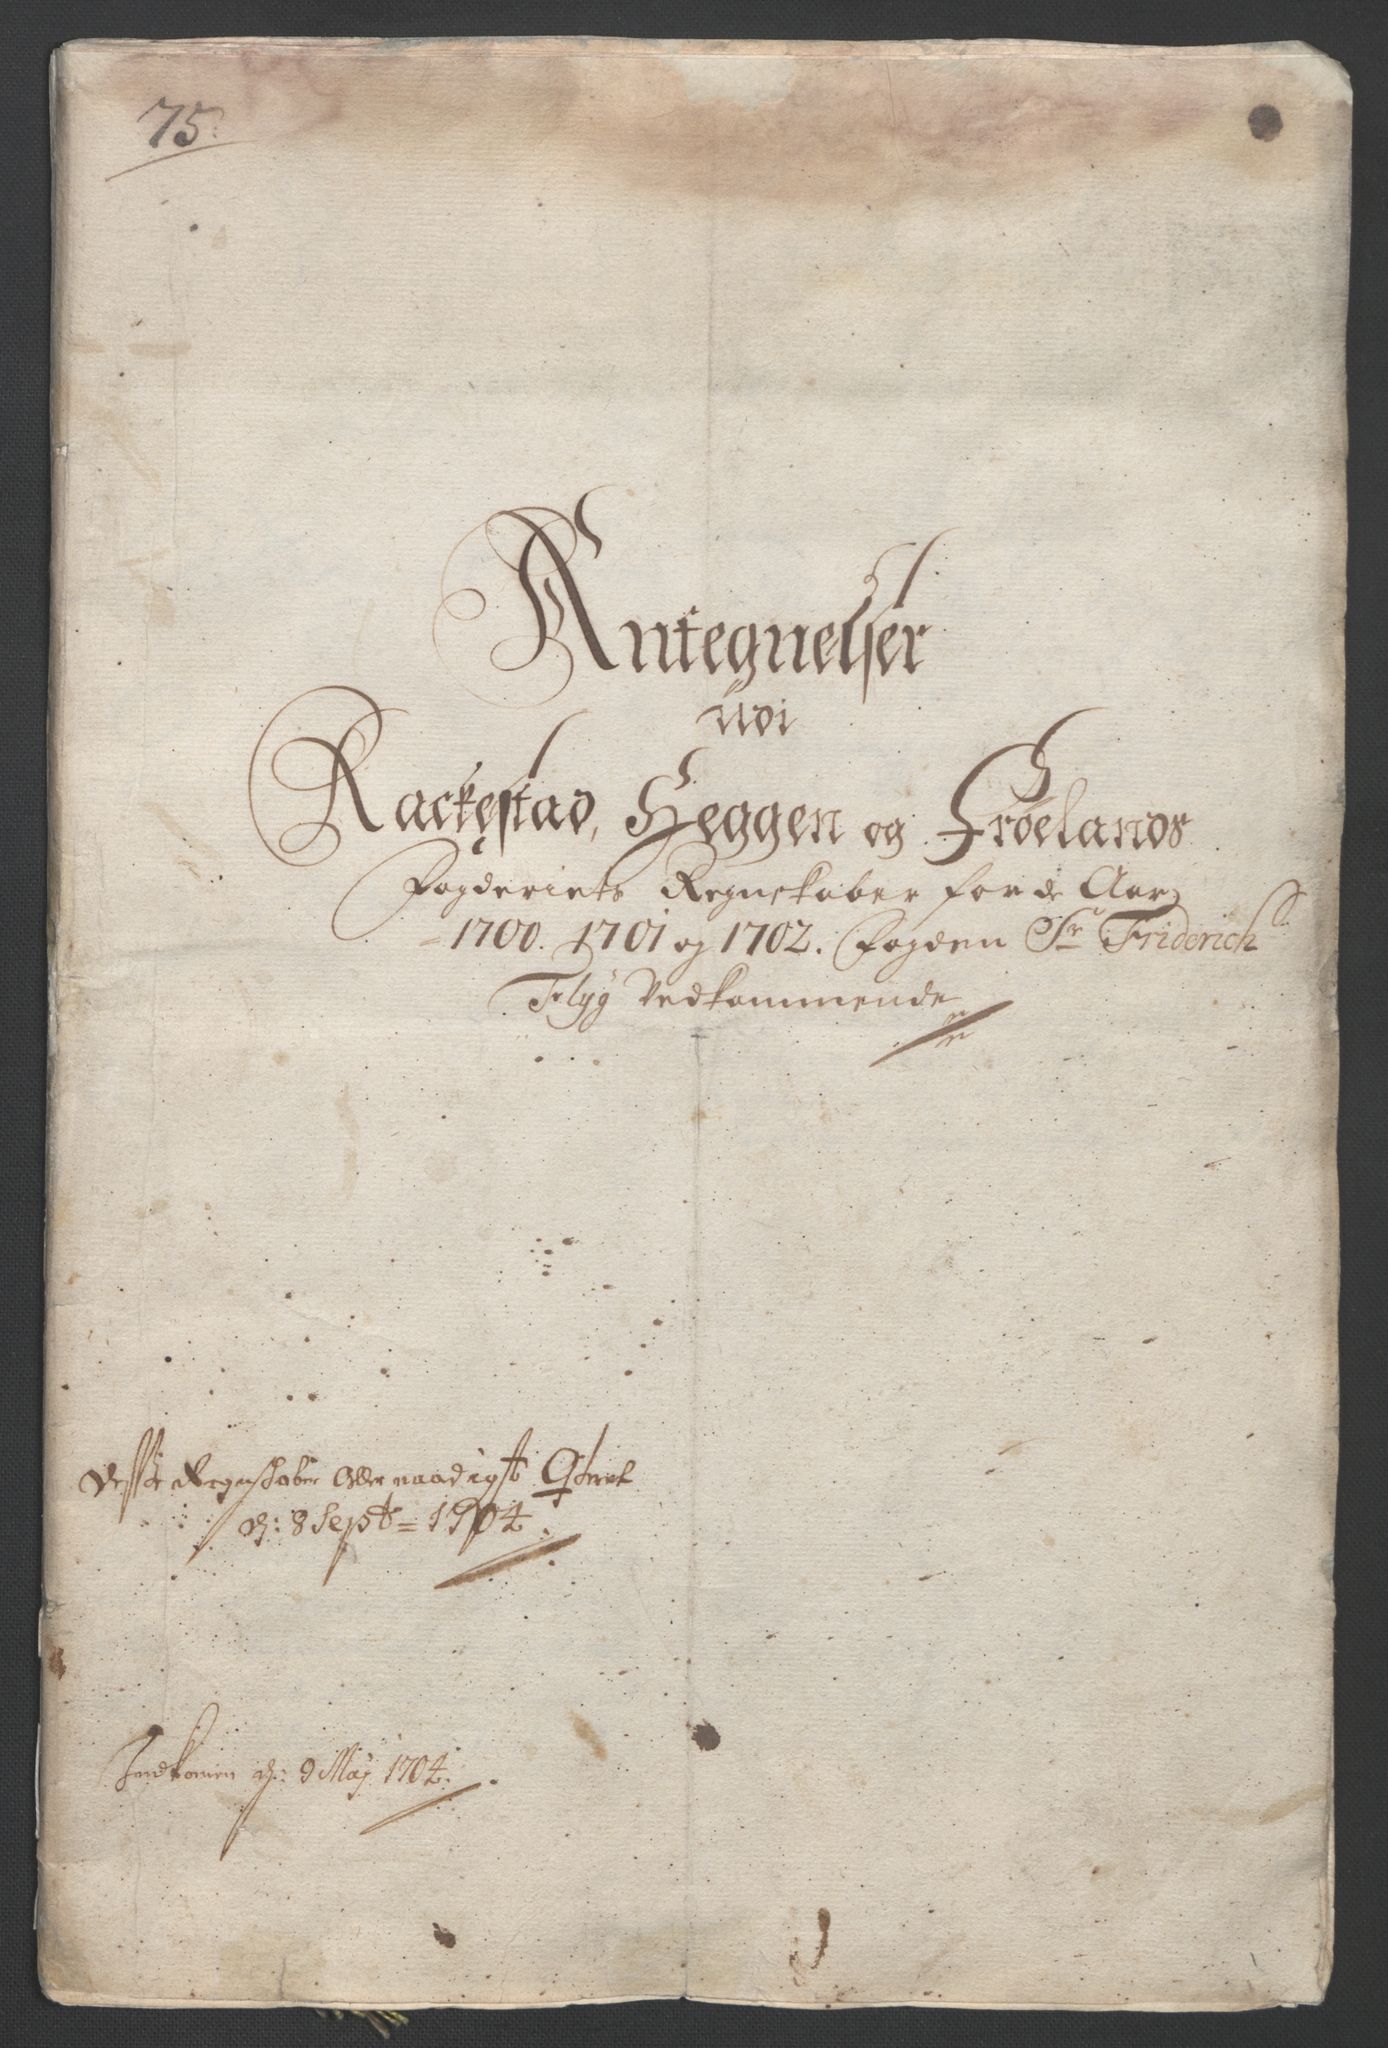 75.
Antegnelser
udi
Rackestad, Heggen og Fröelands
Fogderiets Regnskaber for de Aar
1700. 1701 og 1702. Fogden Sr Friderich
Flyg Vedkommende
Desse Regnskaber Aller naadigst Qviteret
d: 8 Sept = 1704.
Indkomen d: 9 Maj 1704.